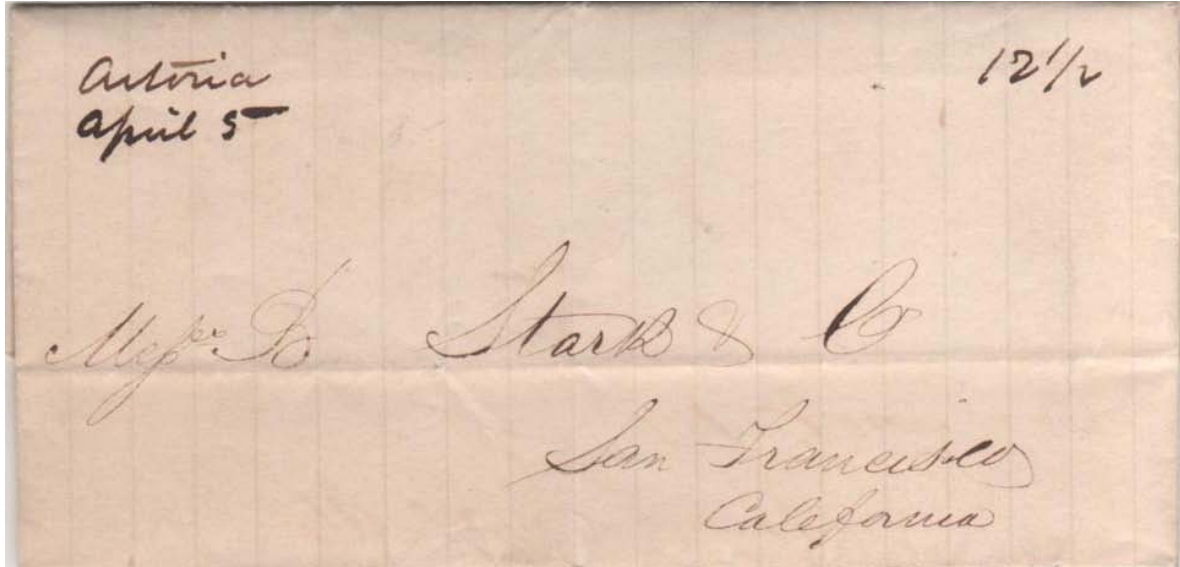 Astoria
April 5
12 1/2
Messrs D Stark & Co
San Francisco
California